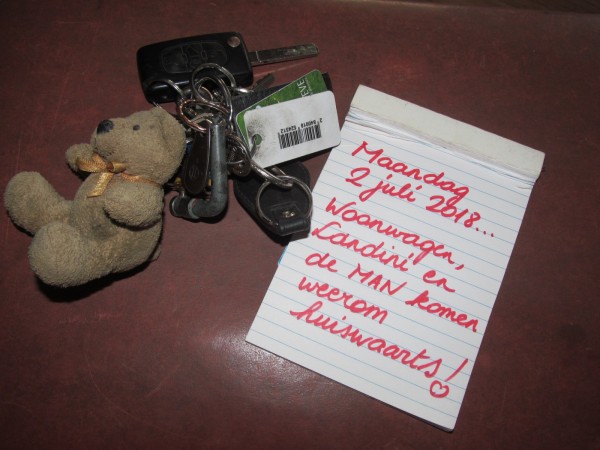 Maandag
2 juli 2018...
Woonwagen,
Landini en
de MAN komen
weerom
huiswaarts!
EVE